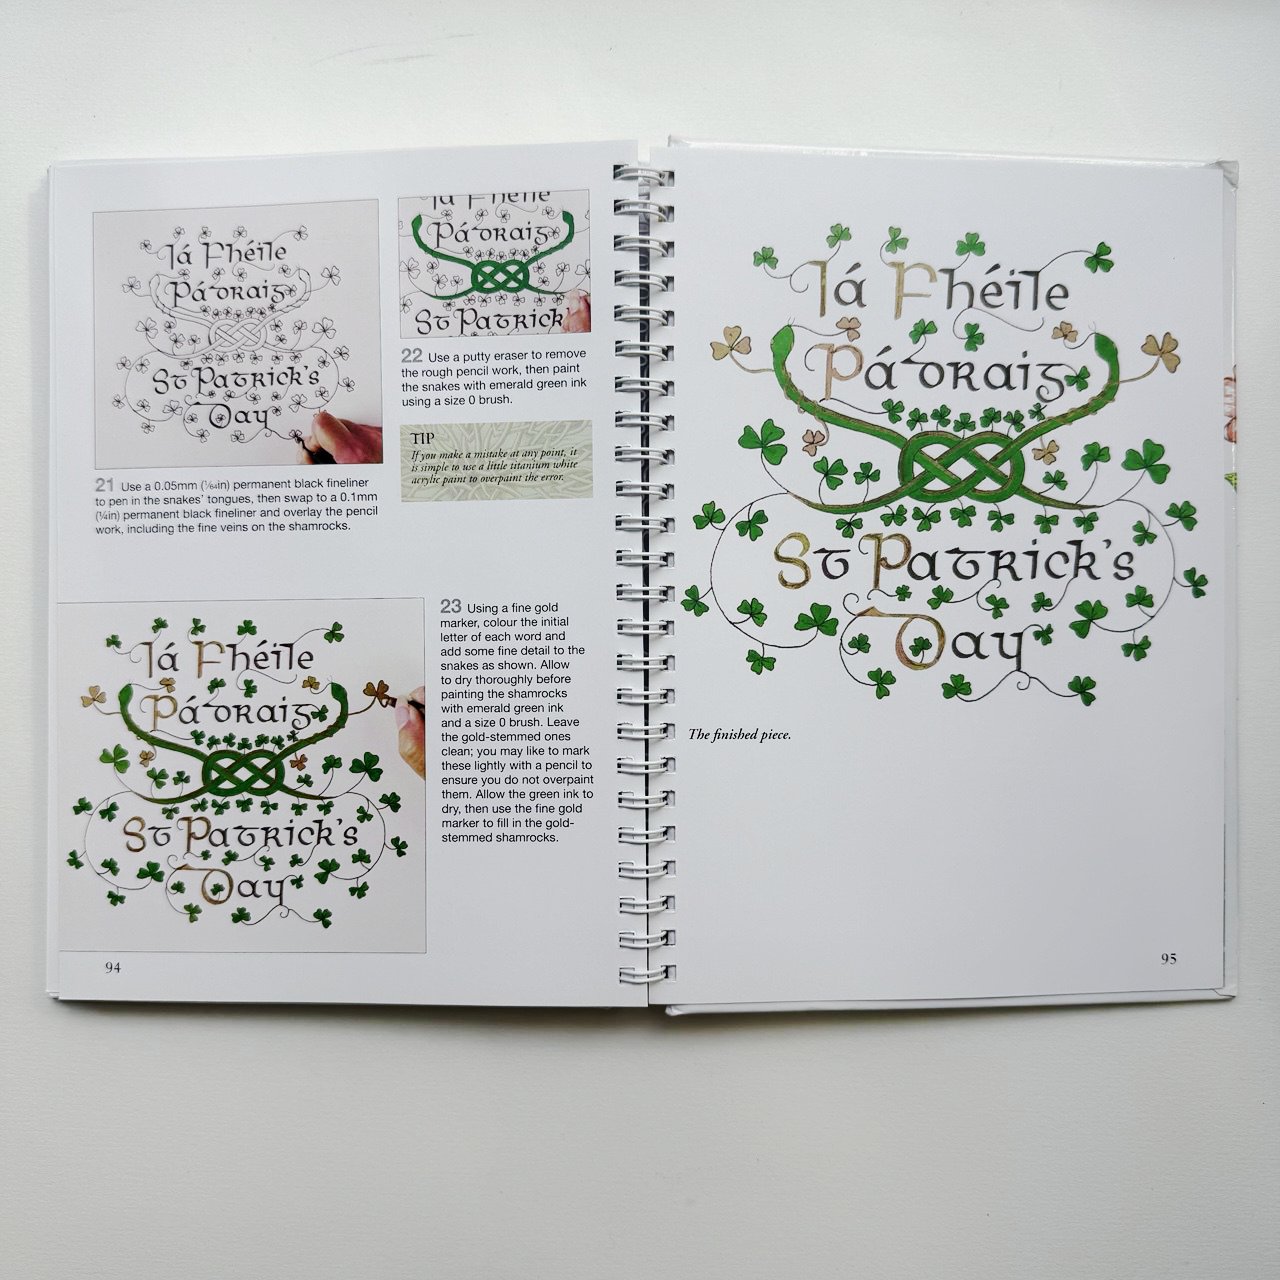 lá Fhéile
Pádraig
St Patrick's
Day
21 Use a 0.05mm (1/64in) permanent black fineliner
to pen in the snakes' tongues, then swap to a 0.1mm
(¼in) permanent black fineliner and overlay the pencil
work, including the fine veins on the shamrocks.
lá Fhéile
Pádraig
St Patrick'
22 Use a putty eraser to remove
the rough pencil work, then paint
the snakes with emerald green ink
using a size 0 brush.
TIP
If you make a mistake at any point, it
is simple to use a little titanium white
acrylic paint to overpaint the error.
lá Fhéile
Pádraig
St Patrick's
Day
23 Using a fine gold
marker, colour the initial
letter of each word and
add some fine detail to the
snakes as shown. Allow
to dry thoroughly before
painting the shamrocks
with emerald green ink
and a size 0 brush. Leave
the gold-stemmed ones
clean; you may like to mark
these lightly with a pencil to
ensure you do not overpaint
them. Allow the green ink to
dry, then use the fine gold
marker to fill in the gold-
stemmed shamrocks.
94
lá Fhéile
Pádraig
St Patrick's
Day
The finished piece.
95